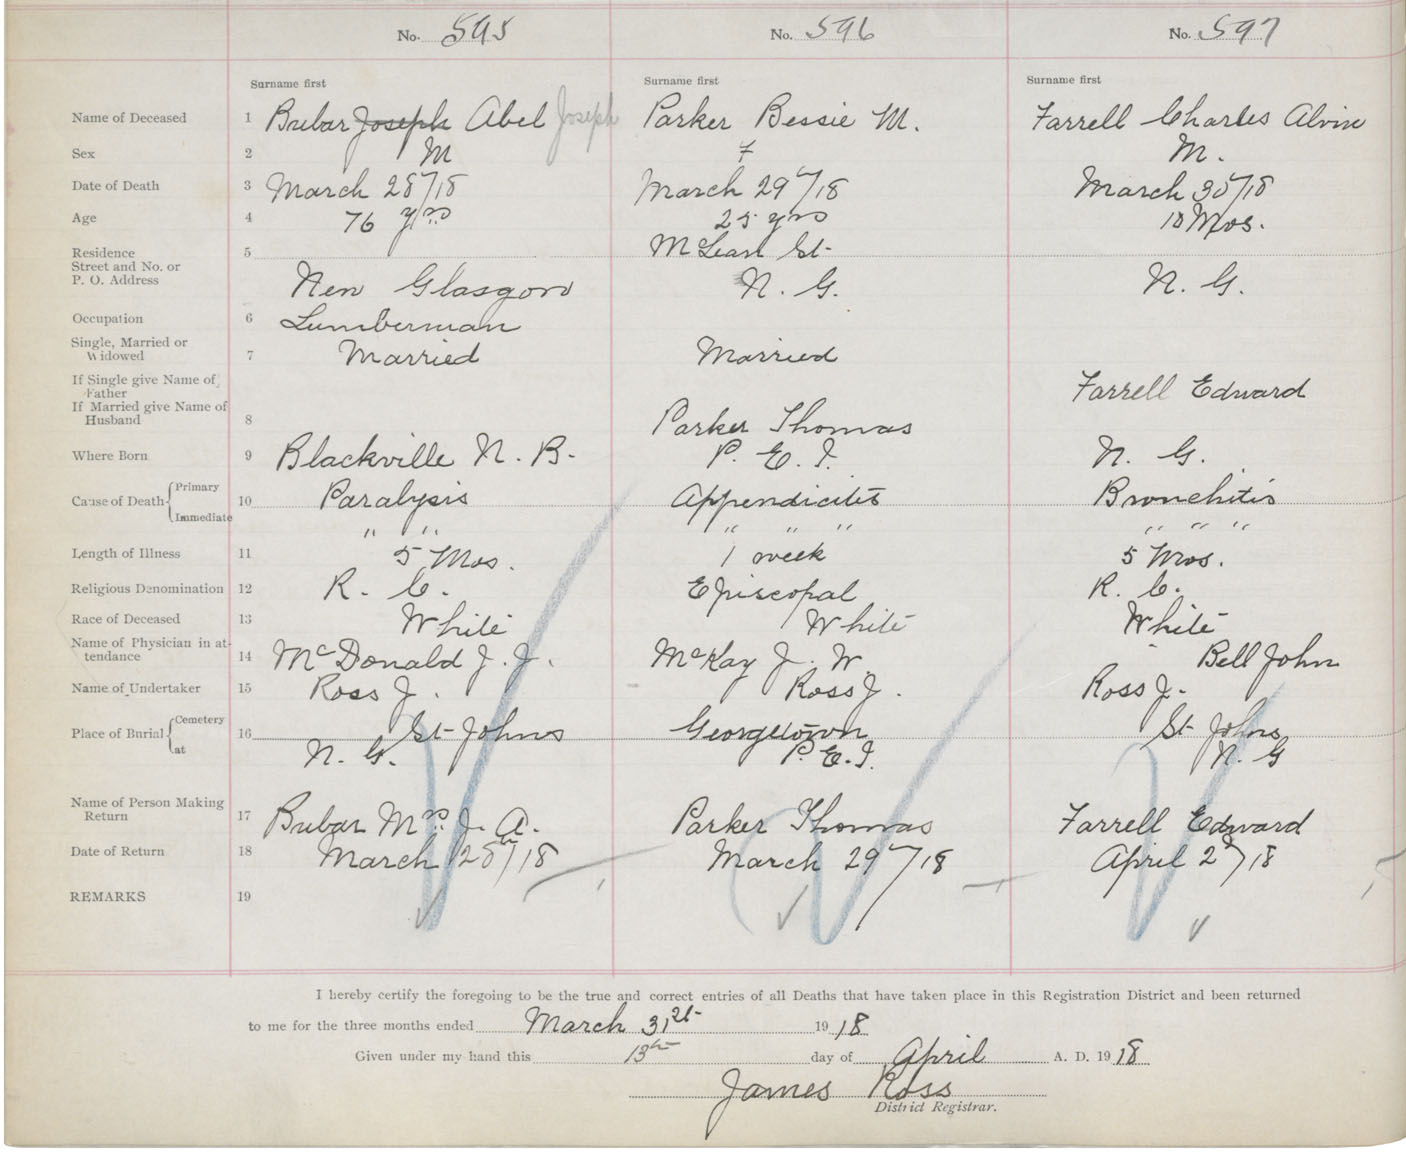 No. 595 No. 596 No. 597
Surname first Surname first Surname first
Name of Deceased 1 Bubar Joseph Abel Joseph Parker Bessie M. Farrell Charles Alvin
Sex 2 M F M.
Date of Death 3 March 28/18 March 29/18 March 30/18
Age 4 76 yrs 25 yrs 18 Mos.
Residence 5 McLean St.
Street and No. or
P. O. Address New Glasgow N. G. N. G.
Occupation 6 Lumberman
Single, Married or
Widowed 7 Married Married
If Single give Name of
Father Farrell Edward
If Married give Name of
Husband 8 Parker Thomas
Where Born 9 Blackville N. B. P. E. I. N. G.
Cause of Death Primary 10 Paralysis Appendicites Bronchitis
Immediate " " " " " " " "
Length of Illness 11 5 Mos. 1 week 5 Mos.
Religious Denomination 12 R. C. Episcopal R. C.
Race of Deceased 13 White White White
Name of Physician in at-
tendance 14 McDonald J. J. McKay J. W. Bell John
Name of Undertaker 15 Ross J. Ross J. Ross J.
Place of Burial Cemetery 16 St Johns Georgetown St Johns
at N. G. P. E. I. N. G
Name of Person Making
Return 17 Bubar Mrs. J. A. Parker Thomas Farrell Edward
Date of Return 18 March 28th/18 March 29/18 April 2/18
REMARKS 19
I hereby certify the foregoing to be the true and correct entries of all Deaths that have taken place in this Registration District and been returned
to me for the three months ended March 31st 1918
Given under my hand this 13th day of April A. D. 1918
James Ross
District Registrar.